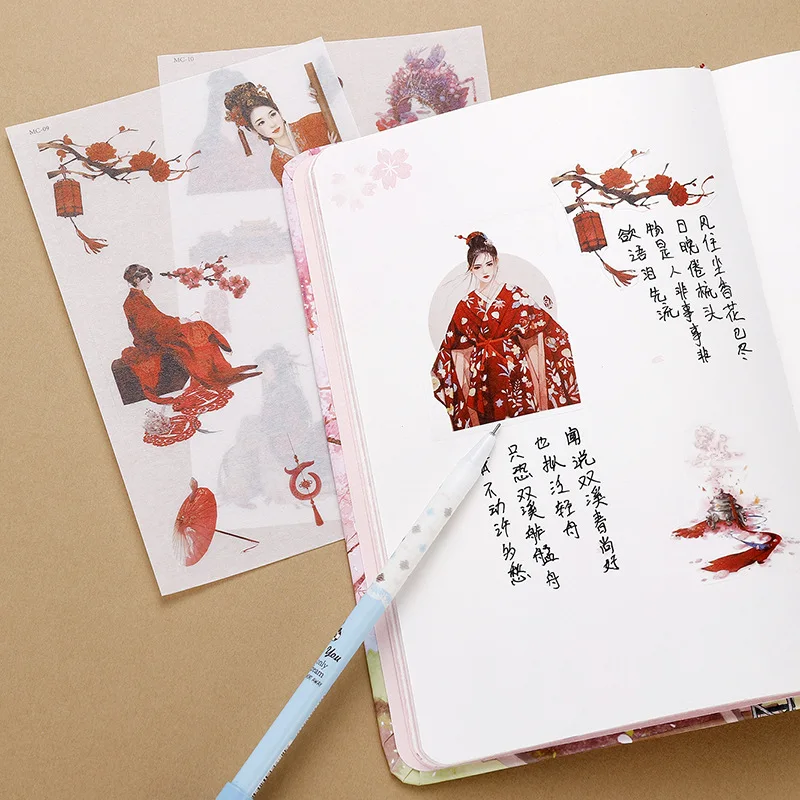 MC-10
MC-09
风住尘香花已尽
日晚倦梳头
物是人非事事非
欲语泪先流
闻说双溪春尚好
也拟泛轻舟
只恐双溪舴艋舟
不动许多愁
You